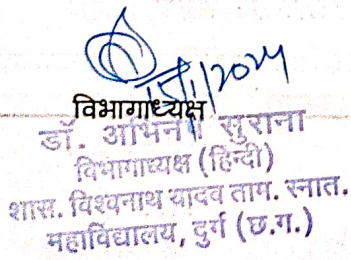 विभागाध्यक्ष
डॉ. अभिनेष सुराना
विभागाध्यक्ष (हिन्दी)
शास. विश्वनाथ यादव ताम. स्नात.
महाविद्यालय, दुर्ग (छ.ग.)